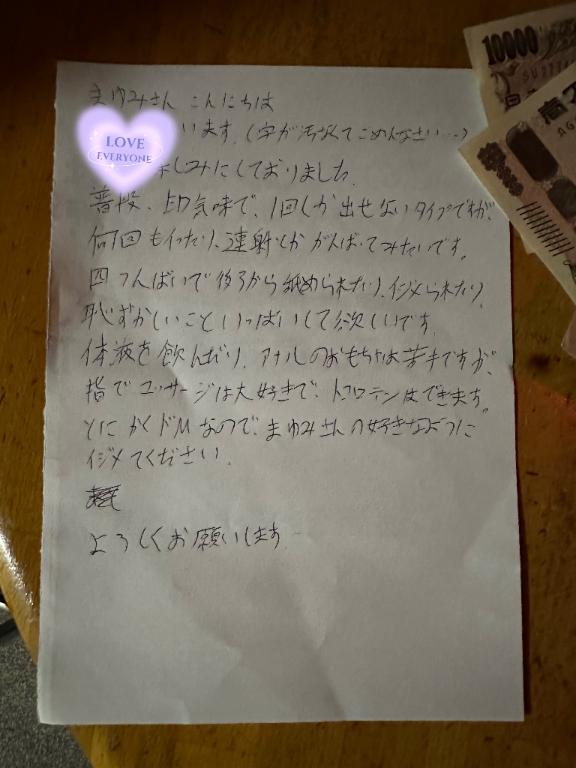 まゆみさん こんにちは
LOVE
EVERYONE
います。(字が汚なくてごめんなさい…)
しみにしておりました。
普段、S気味で、1回しか出せないタイプですが、
何回もイッたり、連射とか がんばってみたいです。
四つんばいで後ろから舐められたり、イジメられたり、
恥ずかしいこといっぱいして欲しいです。
体液を飲んだり、アナルのおもちゃは苦手ですが、
指でマッサージは大好きで、トコロテンはできます。
とにかくドMなので、まゆみさんの好きなように
イジメてください。
よろしくお願いします
10000